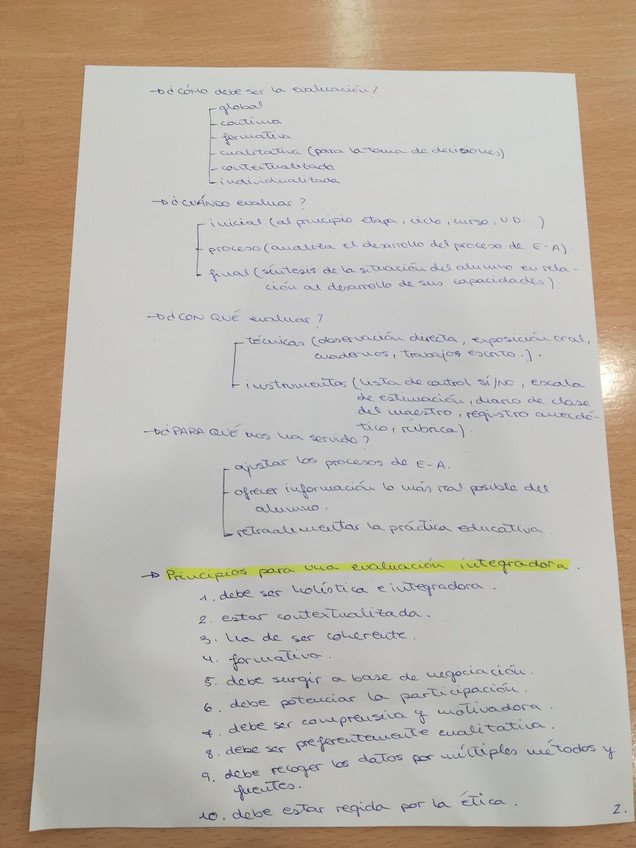 → ¿CÓMO debe ser la evaluación?
global
continua
formativa
cualitativa (para la toma de decisiones)
contextualizada
individualizada
→ ¿CUÁNDO evaluar?
inicial (al principio etapa, ciclo, curso, U.D.)
proceso (analiza el desarrollo del proceso de E-A).
final (síntesis de la situación del alumno en rela-
ción al desarrollo de sus capacidades).
→ ¿CON QUÉ evaluar?
técnicas (observación directa, exposición oral,
cuadernos, trabajos escrito.).
instrumentos (lista de control sí/no, escala
de estimación, diario de clase
del maestro, registro anecdó-
tico, rúbrica).
→ ¿PARA QUÉ nos ha servido?
ajustar los procesos de E-A.
ofrecer información lo más real posible del
alumno.
retroalimentar la práctica educativa.
→ Principios para una evaluación integradora.
1. debe ser holística e integradora.
2. estar contextualizada.
3. ha de ser coherente.
4. formativa.
5. debe surgir a base de negociación.
6. debe potenciar la participación.
7. debe ser comprensiva y motivadora.
8. debe ser preferentemente cualitativa.
9. debe recoger los datos por múltiples métodos y
fuentes.
10. debe estar regida por la ética.
2.